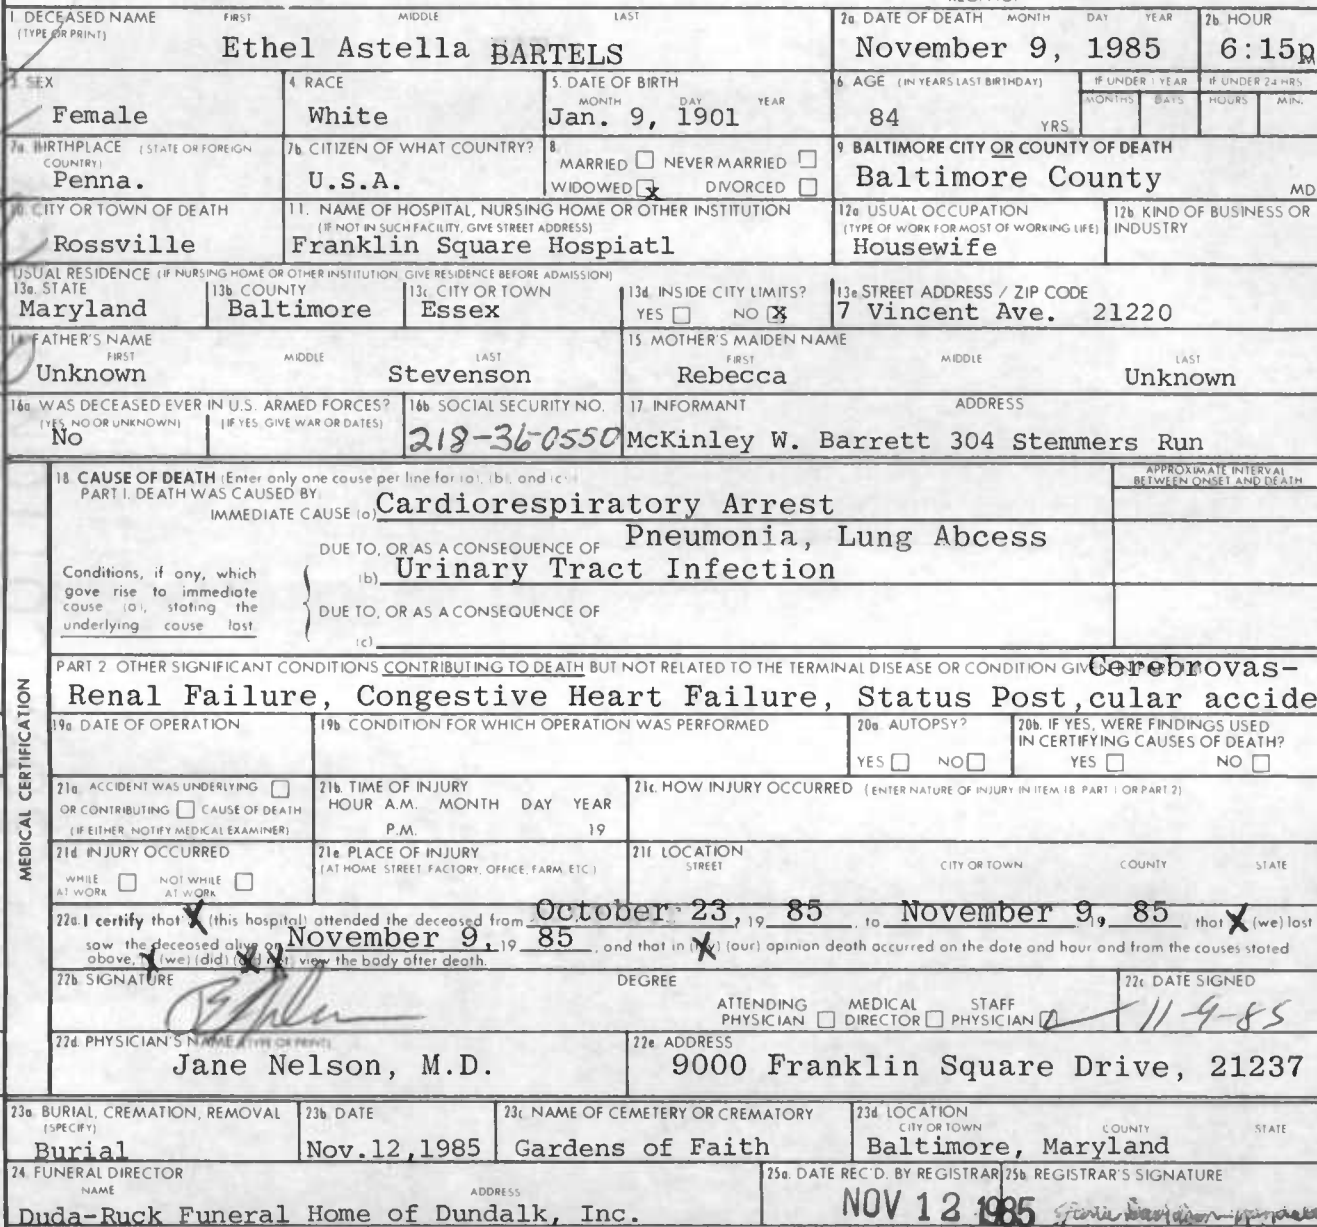 1 DECEASED NAME FIRST MIDDLE LAST
(TYPE OR PRINT)
Ethel Astella BARTELS
2a DATE OF DEATH MONTH DAY YEAR
November 9, 1985
2b. HOUR
6:15p
3. SEX
Female
4 RACE
White
5. DATE OF BIRTH
MONTH DAY YEAR
Jan. 9, 1901
6 AGE (IN YEARS LAST BIRTHDAY)
84 YRS
IF UNDER 1 YEAR
MONTHS DAYS
IF UNDER 24 HRS
HOURS MIN.
7a. BIRTHPLACE (STATE OR FOREIGN
COUNTRY)
Penna.
7b CITIZEN OF WHAT COUNTRY?
U.S.A.
8
MARRIED NEVER MARRIED
WIDOWED x DIVORCED
9 BALTIMORE CITY OR COUNTY OF DEATH
Baltimore County MD
10. CITY OR TOWN OF DEATH
Rossville
11. NAME OF HOSPITAL, NURSING HOME OR OTHER INSTITUTION
(IF NOT IN SUCH FACILITY, GIVE STREET ADDRESS)
Franklin Square Hospiatl
12a USUAL OCCUPATION
(TYPE OF WORK FOR MOST OF WORKING LIFE)
Housewife
12b KIND OF BUSINESS OR
INDUSTRY
USUAL RESIDENCE (IF NURSING HOME OR OTHER INSTITUTION, GIVE RESIDENCE BEFORE ADMISSION)
13a. STATE
Maryland
13b COUNTY
Baltimore
13c CITY OR TOWN
Essex
13d. INSIDE CITY LIMITS?
YES NO X
13e STREET ADDRESS / ZIP CODE
7 Vincent Ave. 21220
14 FATHER'S NAME
FIRST MIDDLE LAST
Unknown Stevenson
15 MOTHER'S MAIDEN NAME
FIRST MIDDLE LAST
Rebecca Unknown
16a WAS DECEASED EVER IN U.S. ARMED FORCES?
(YES, NO OR UNKNOWN) (IF YES, GIVE WAR OR DATES)
No
16b SOCIAL SECURITY NO.
218-36-0550
17 INFORMANT ADDRESS
McKinley W. Barrett 304 Stemmers Run
MEDICAL CERTIFICATION
18 CAUSE OF DEATH (Enter only one cause per line for (a), (b), and (c).)
PART I. DEATH WAS CAUSED BY
APPROXIMATE INTERVAL
BETWEEN ONSET AND DEATH
IMMEDIATE CAUSE (a) Cardiorespiratory Arrest
DUE TO, OR AS A CONSEQUENCE OF Pneumonia, Lung Abcess
(b) Urinary Tract Infection
Conditions, if any, which
gove rise to immediate
cause (a), stating the
underlying cause last
DUE TO, OR AS A CONSEQUENCE OF
(c)
PART 2 OTHER SIGNIFICANT CONDITIONS CONTRIBUTING TO DEATH BUT NOT RELATED TO THE TERMINAL DISEASE OR CONDITION GIV Cerebrovas-
Renal Failure, Congestive Heart Failure, Status Post, cular accide
19a DATE OF OPERATION
19b CONDITION FOR WHICH OPERATION WAS PERFORMED
20a AUTOPSY?
YES NO
20b. IF YES, WERE FINDINGS USED
IN CERTIFYING CAUSES OF DEATH?
YES NO
21a ACCIDENT WAS UNDERLYING
OR CONTRIBUTING CAUSE OF DEATH
(IF EITHER, NOTIFY MEDICAL EXAMINER)
21b. TIME OF INJURY
HOUR A.M. MONTH DAY YEAR
P.M. 19
21c. HOW INJURY OCCURRED (ENTER NATURE OF INJURY IN ITEM 18 PART 1 OR PART 2)
21d INJURY OCCURRED
WHILE AT WORK NOT WHILE AT WORK
21e PLACE OF INJURY
(AT HOME STREET FACTORY, OFFICE, FARM, ETC.)
21f LOCATION
STREET CITY OR TOWN COUNTY STATE
22a. I certify that X (this hospital) attended the deceased from October 23, 19 85 to November 9, 19 85 that X (we) last
saw the deceased alive on November 9, 19 85, and that in (my) (our) opinion death occurred on the date and hour and from the causes stated
above, X (we) (did) (did not) view the body after death.
22b SIGNATURE DEGREE
ATTENDING PHYSICIAN MEDICAL DIRECTOR STAFF PHYSICIAN
22c DATE SIGNED
11-9-85
22d. PHYSICIAN'S NAME (TYPE OR PRINT)
Jane Nelson, M.D.
22e ADDRESS
9000 Franklin Square Drive, 21237
23a BURIAL, CREMATION, REMOVAL
(SPECIFY)
Burial
23b DATE
Nov.12,1985
23c NAME OF CEMETERY OR CREMATORY
Gardens of Faith
23d LOCATION
CITY OR TOWN COUNTY STATE
Baltimore, Maryland
24 FUNERAL DIRECTOR
NAME ADDRESS
Duda-Ruck Funeral Home of Dundalk, Inc.
25a. DATE REC'D. BY REGISTRAR
NOV 12 1985
25b. REGISTRAR'S SIGNATURE